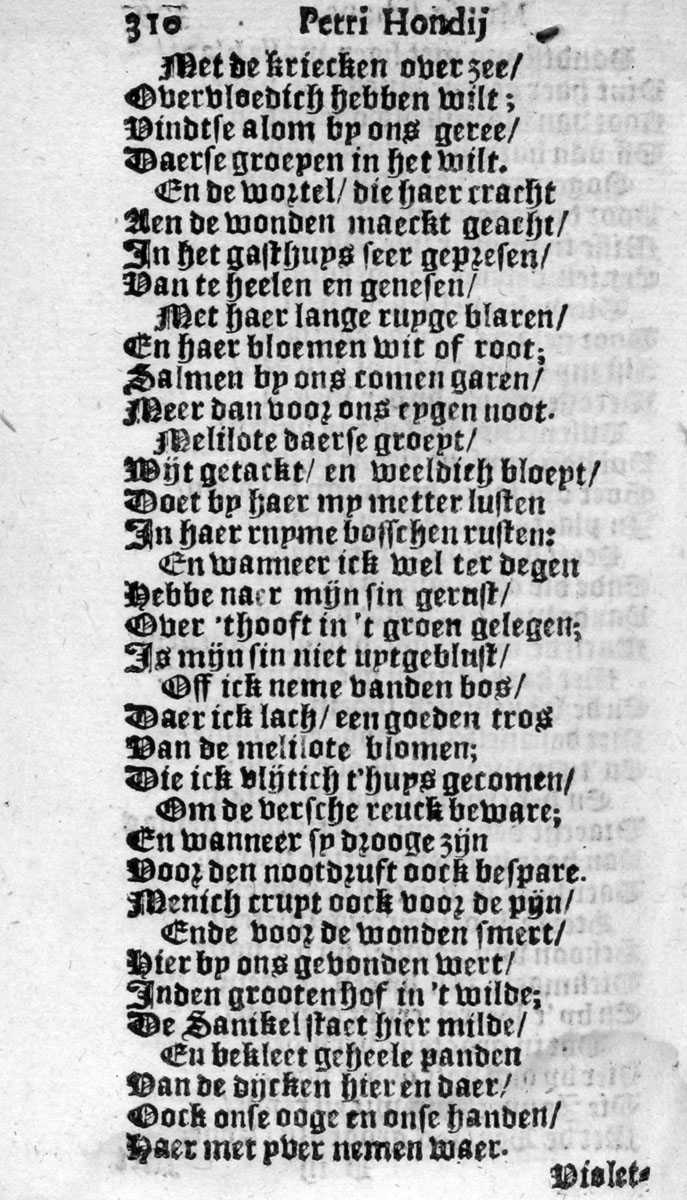 310 Petri Hondij
Met de kriecken over zee/
Overvloedich hebben wilt;
Vindtse alom by ons geree/
Daerse groepen in het wilt.
En de wortel/ die haer cracht
Aen de wonden maeckt geacht/
In het gasthuys seer gepresen/
Van te heelen en genesen/
Met haer lange ruyge blaren/
En haer bloemen wit of root;
Salmen by ons comen garen/
Meer dan voor ons eygen noot.
Melilote daerse groeyt/
Wijt getackt/ en weeldich bloeyt/
Doet by haer my metter lusten
In haer ruyme bosschen rusten:
En wanneer ick wel ter degen
Hebbe naer mijn sin gerust/
Over 'thooft in 't groen gelegen;
Is mijn sin niet uytgeblust/
Off ick neme vanden bos/
Daer ick lach/ een goeden tros
Van de melilote blomen;
Die ick vlijtich t'huys gecomen/
Om de versche reuck beware;
En wanneer sy drooge zijn
Voor den nootdruft oock bespare.
Menich cruyt oock voor de pijn/
Ende voor de wonden smert/
Hier by ons gevonden wert/
Inden grooten hof in 't wilde;
De Sanikel staet hier milde/
En bekleet geheele panden
Van de dijcken hier en daer/
Oock onse ooge en onse handen/
Haer met yver nemen waer.
Violet-